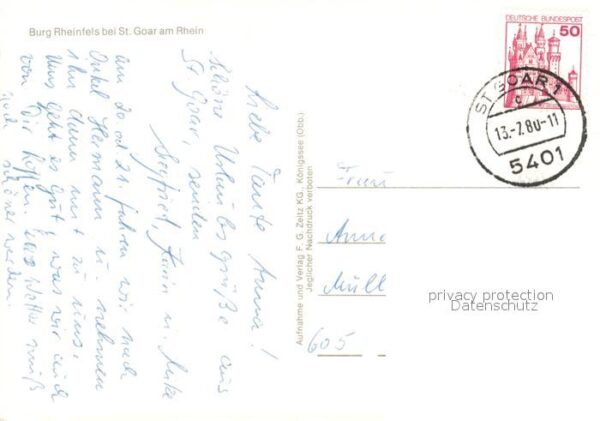 Burg Rheinfels bei St. Goar am Rhein
Liebe Tante Anna!
Schöne Urlaubsgrüße aus
St. Goar, senden
Siegfried, Karin u. Anke
am 20 od 21. fahren wir nach
Onkel Hermann u. nehmen
ihn dann mit zu uns.
Uns geht es gut, was wir auch
von Dir hoffen. Das Wetter muß
noch schöner werden.
Aufnahme und Verlag F. G. Zeitz KG., Königssee (Obb.)
Jeglicher Nachdruck verboten
DEUTSCHE BUNDESPOST
50
ST. GOAR 1
13.-7.80-11
5401
Frau
Anna
Müll
605
privacy protection
Datenschutz